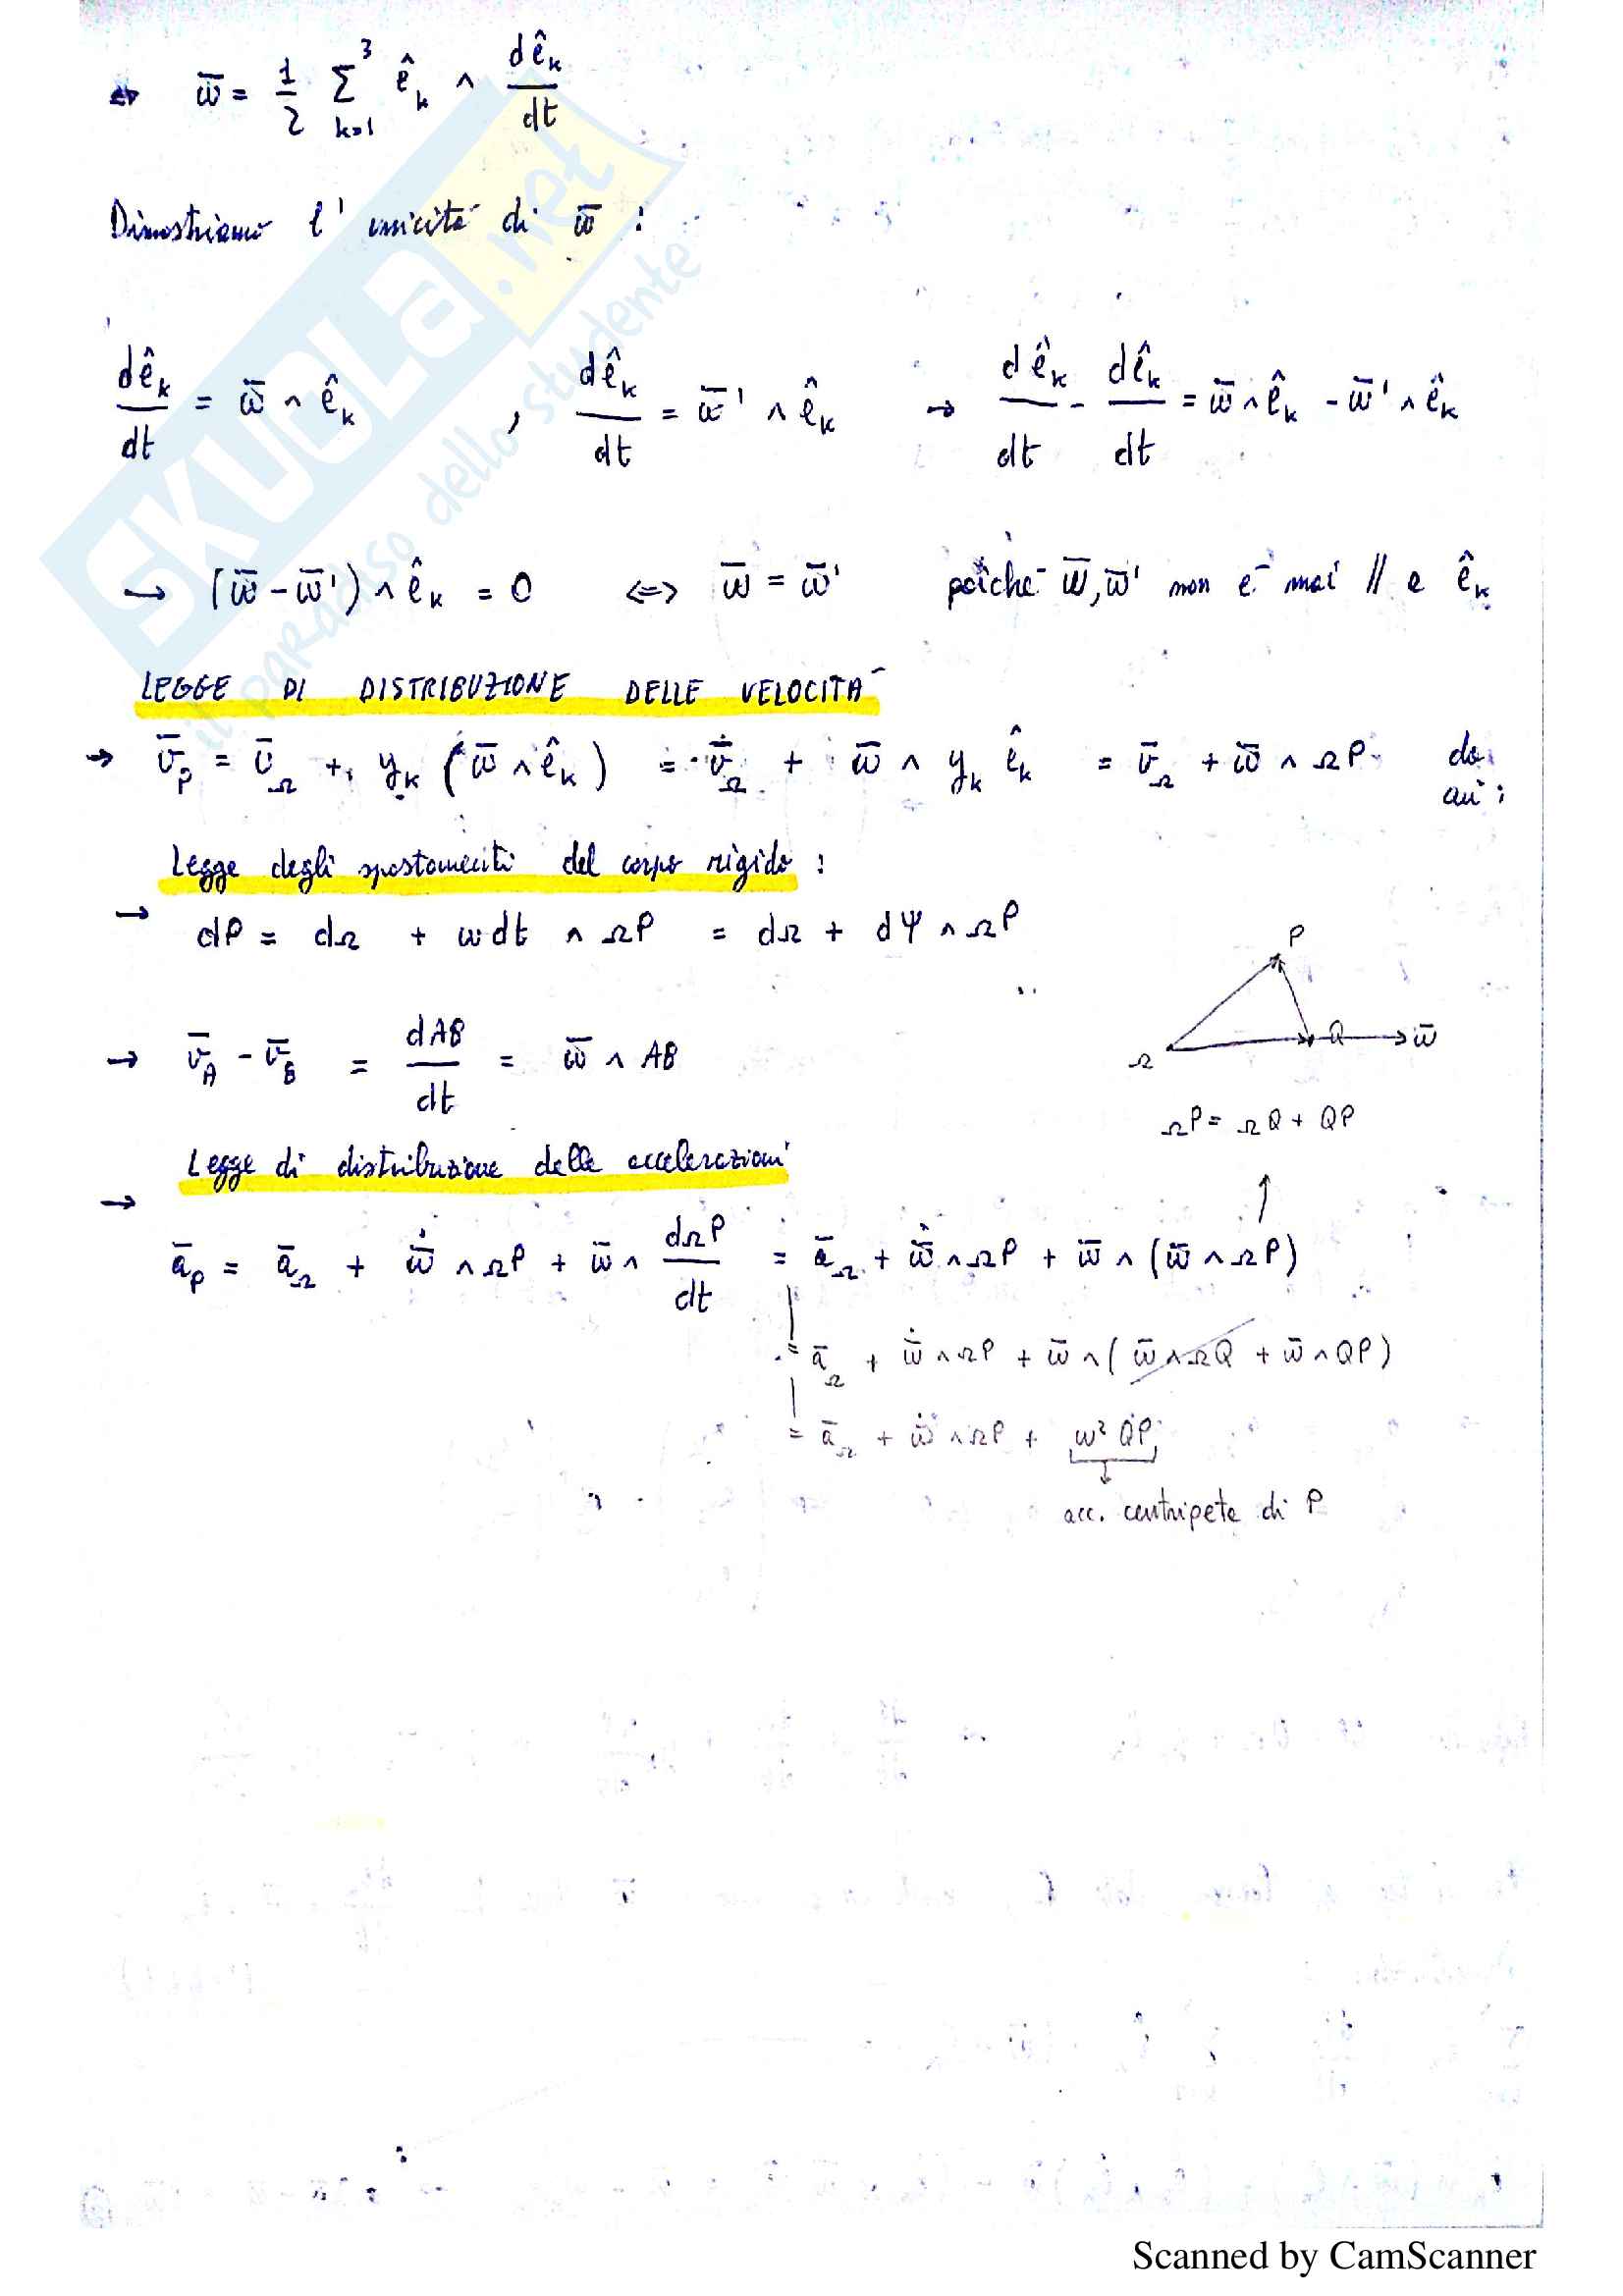 ⇔ ω̄ = 1/2 Σ_{k=1}^{3} ê_k ∧ dê_k/dt
Dimostriamo l'unicità di ω̄ :
dê_k/dt = ω̄ ∧ ê_k , dê_k/dt = ω̄' ∧ ê_k → dê_k/dt - dê_k/dt = ω̄ ∧ ê_k - ω̄' ∧ ê_k
→ (ω̄ - ω̄') ∧ ê_k = 0 ⇔ ω̄ = ω̄' poiché ω̄, ω̄' non è mai // a ê_k
LEGGE DI DISTRIBUZIONE DELLE VELOCITÀ
→ v̄_P = v̄_Ω + y_k (ω̄ ∧ ê_k) = v̄_Ω + ω̄ ∧ y_k ê_k = v̄_Ω + ω̄ ∧ ΩP da
cui :
Legge degli spostamenti del corpo rigido :
→ dP = dΩ + ωdt ∧ ΩP = dΩ + dΨ ∧ ΩP
P
Ω Q ω̄
→ v̄_A - v̄_B = dAB/dt = ω̄ ∧ AB
ΩP = ΩQ + QP
Legge di distribuzione delle accelerazioni
→ ā_P = ā_Ω + ω̄̇ ∧ ΩP + ω̄ ∧ dΩP/dt = ā_Ω + ω̄̇ ∧ ΩP + ω̄ ∧ (ω̄ ∧ ΩP)
= ā_Ω + ω̄̇ ∧ ΩP + ω̄ ∧ (ω̄ ∧ ΩQ + ω̄ ∧ QP)
= ā_Ω + ω̄̇ ∧ ΩP + ω² QP
acc. centripeta di P
SKUOLA.net
il paradiso dello studente
Scanned by CamScanner